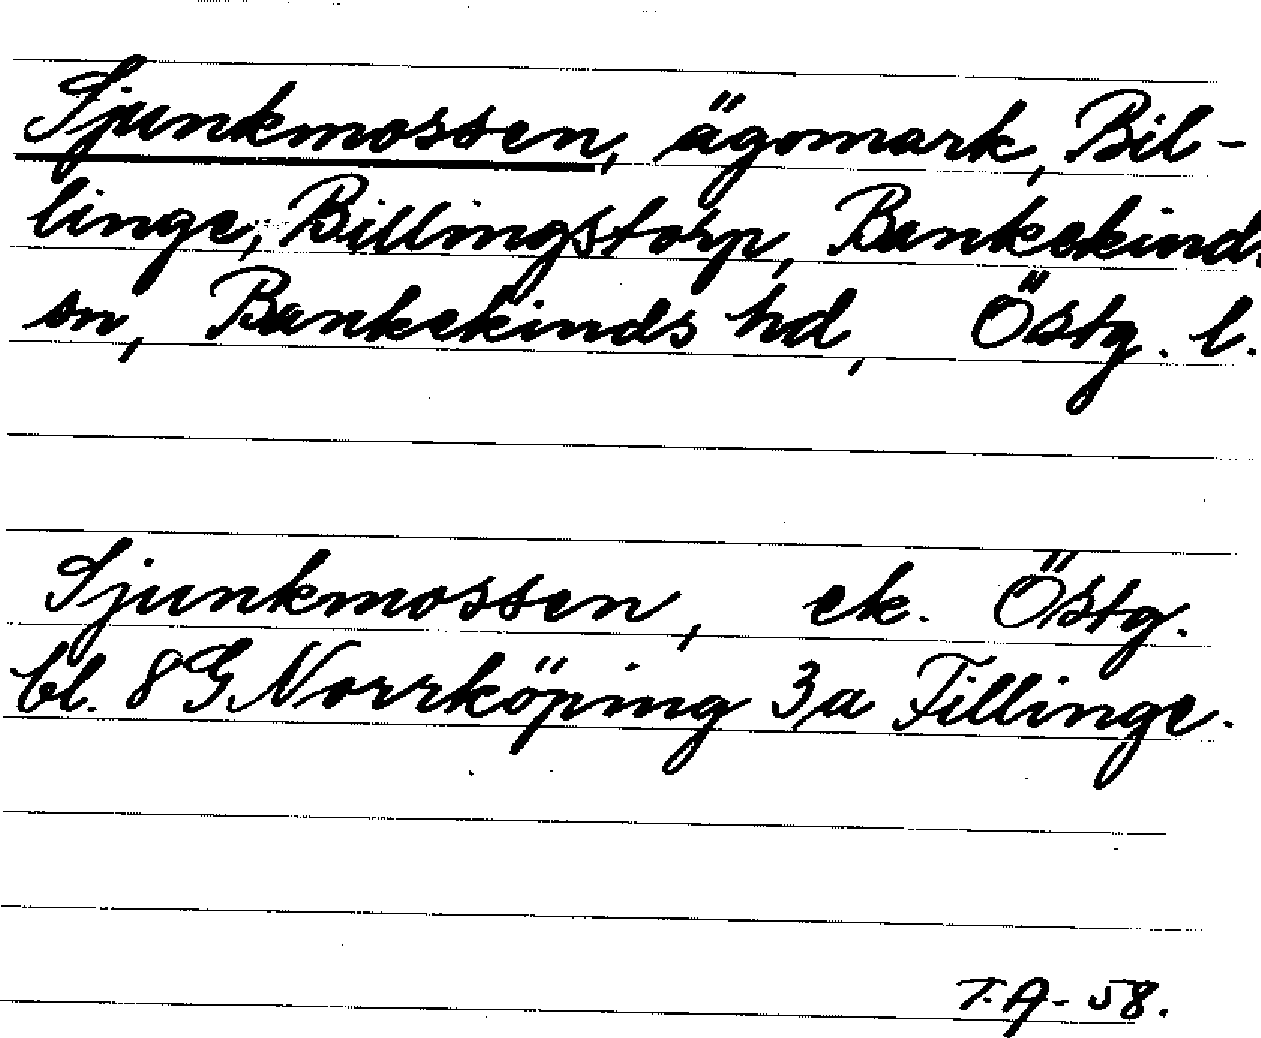 Sjunkmossen, ägomark, Bil-
linge, Billingstorp, Bankekinds
sn, Bankekinds hd, Östg. l.
Sjunkmossen, ek. Östg.
bl. 8 G Norrköping 3a Fillinge.
T.A-58.